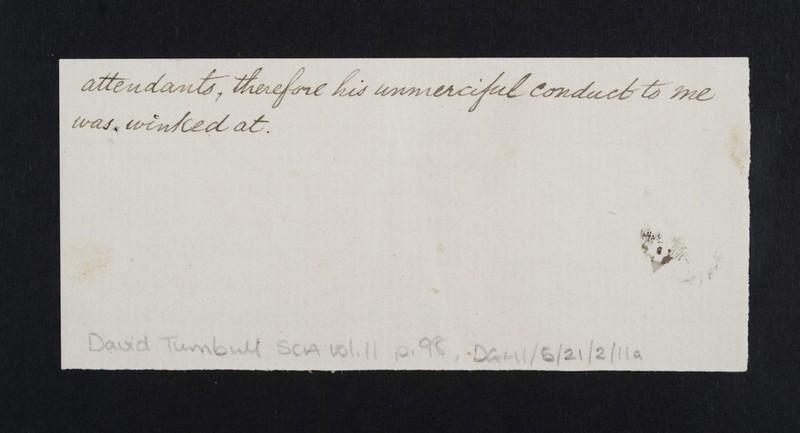 attendants, therefore his unmerciful conduct to me
was winked at.
David Turnbull SCIA vol. 11 p. 98. DGH1/5/21/2/11a